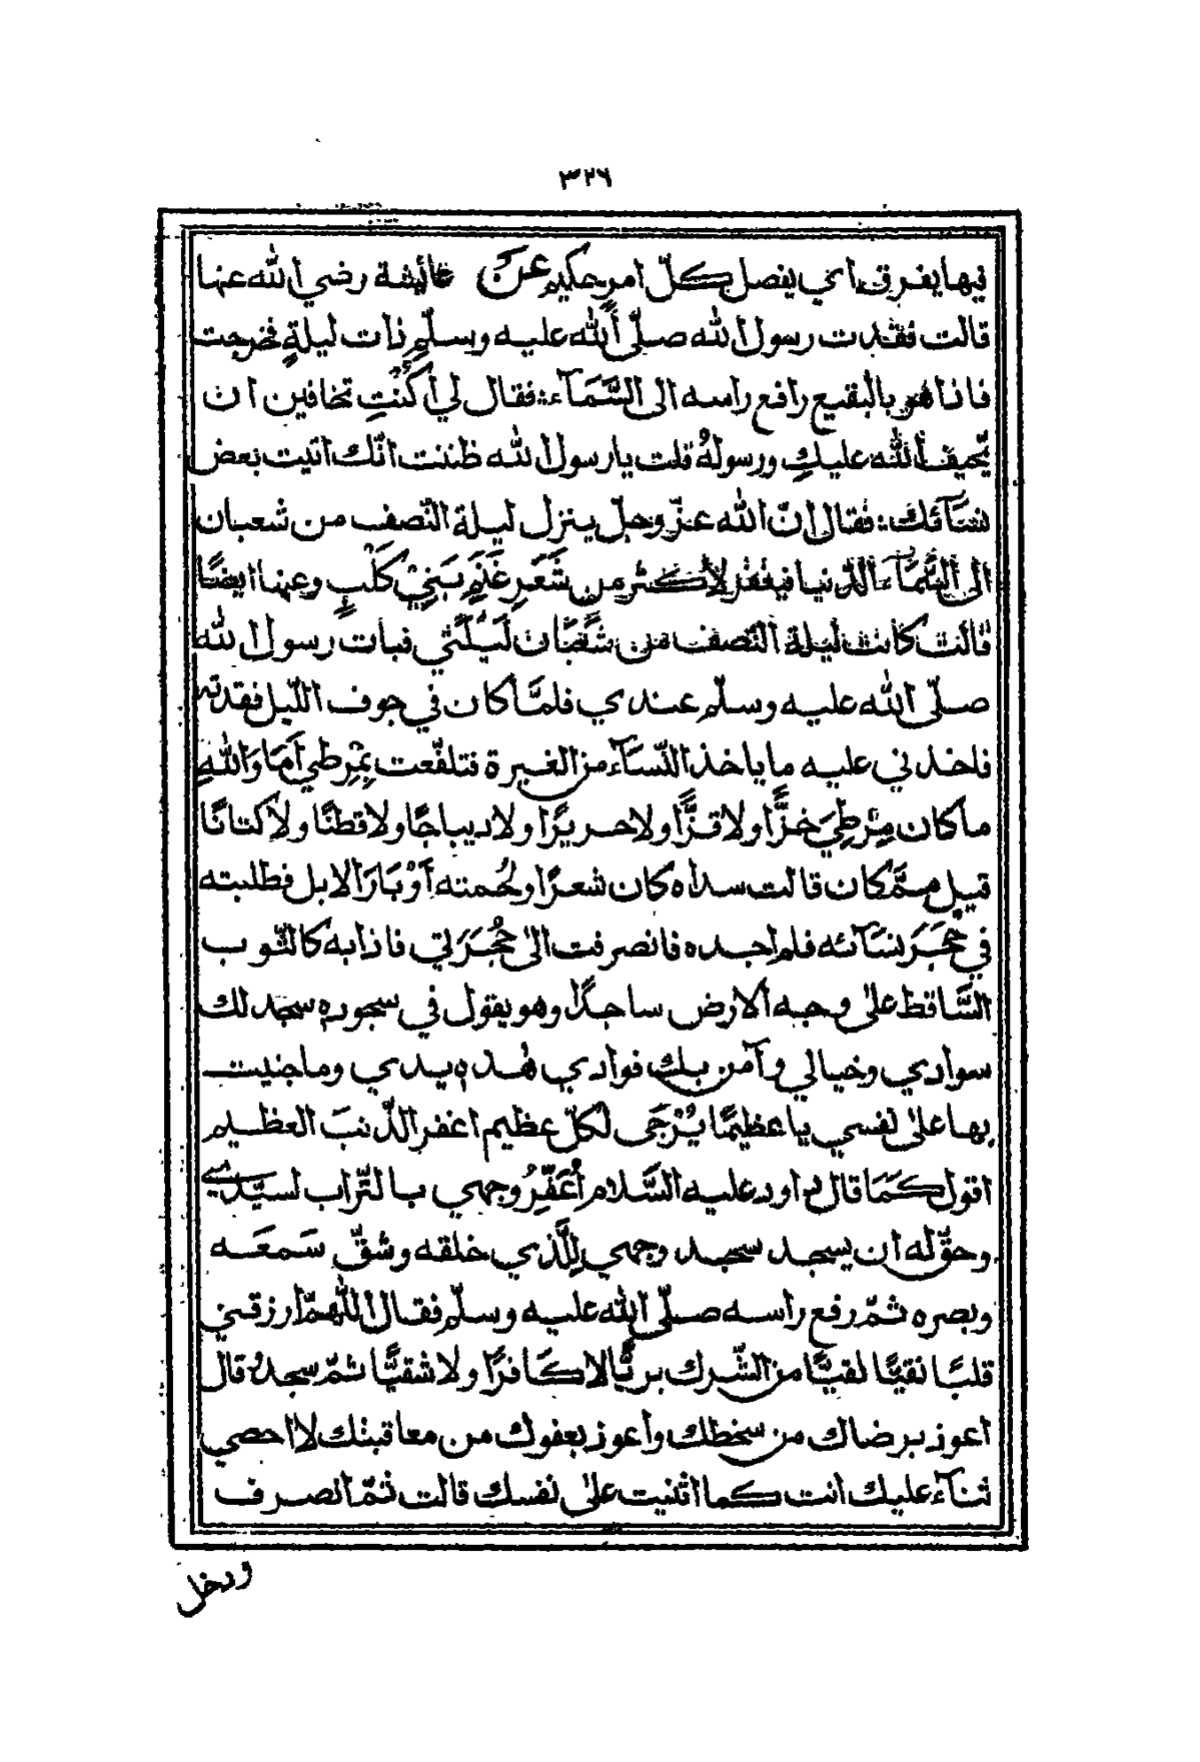 ٣٢٦
فيها يفرق اي يفصل كلّ امر حكيم عن عائشة رضي الله عنها
قالت فقدت رسول الله صلّى الله عليه وسلّم ذات ليلةٍ فخرجت
فاذا هو بالبقيع رافع راسه الى السّمآء فقال لي أكنتِ تخافين ان
يّحيف الله عليكِ ورسولهُ قلت يا رسول الله ظننت انّك اتيت بعض
نسآئك فقال انّ الله عزّ وجلّ ينزل ليلة النّصف من شعبان
الى السّمآء الدّنيا فيغفر لأكثر من شَعَرِ غَنَمِ بَنِيْ كَلْبٍ وعنها ايضًا
قالت كانت ليلة النّصف من شَعْبَان لَيْلَتي فبات رسول الله
صلّى الله عليه وسلّم عندي فلمَّا كان في جوف اللّيل فقدته
فاخذني عليه ما ياخذ النّسآء من الغيرة فتلفّعت بِمْرطي أمَا وَاللهِ
ما كان مِرْطِيَ خزًّا ولا قزًّا ولا حريرًا ولا ديباجًا ولا قطنًا ولا كتانًا
قيل ممَّ كان قالت سداه كان شعرًا ولُحمته أوْبَارَ الابل فطلبته
في حُجَرِ نسآئه فلم اجده فانصرفت الى حُجْرَتي فاذا به كالثّوب
السَّاقط على وجه الارض ساجدًا وهو يقول في سجوده سجد لك
سوادي وخيالي وآمن بك فوادي هٰذه يدي وما جنيت
بها على نفسي يا عظيمًا يُرْجَى لكلّ عظيم اغفر الذّنبَ العظيم
اقول كَمَا قال داود عليه السَّلام أُعَفِّرُ وجهي بالتّراب لسيّدي
وحقّ له ان يسجد سجد وجهي لِلَّذي خلقه وشقّ سَمعَه
وبصره ثمّ رفع راسه صلّى الله عليه وسلّم فقال اللّهمّ ارزقني
قلبًا نقيًّا لقيًّا من الشّرك بريًّا لا كَافرًا ولا شقيًّا ثمّ سجد وقال
اعوذ برضاك من سخطك واعوذ بعفوك من معاقبتك لا احصي
ثنآء عليك انت كما اثنيت على نفسك قالت ثمّ انصرف
ودخل